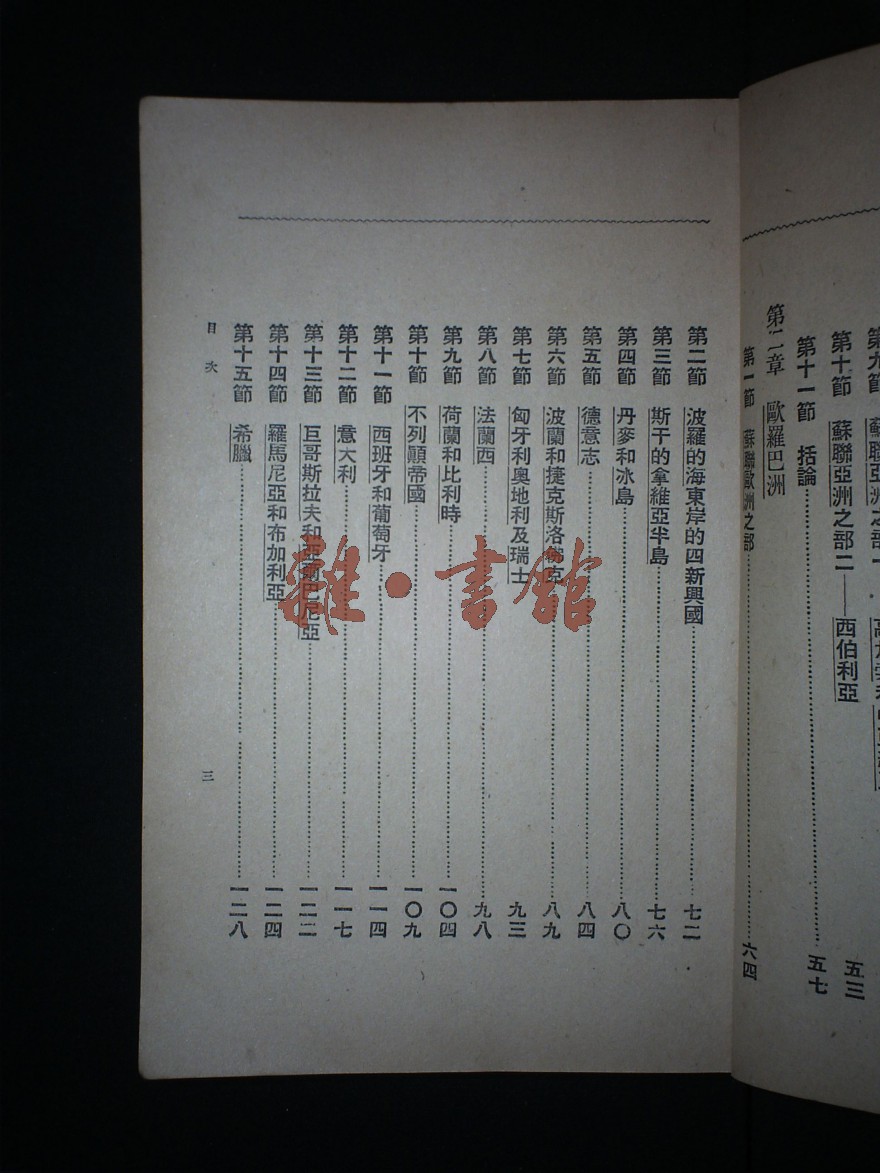 第十節 蘇聯亞洲之部二——西伯利亞 五三
第十一節 括論 五七
第二章 歐羅巴洲
第一節 蘇聯歐洲之部 六四
第二節 波羅的海東岸的四新興國 七二
第三節 斯干的拿維亞半島 七六
第四節 丹麥和冰島 八〇
第五節 德意志 八四
第六節 波蘭和捷克斯洛 克 八九
第七節 匈牙利奧地利及瑞士 九三
第八節 法蘭西 九八
第九節 荷蘭和比利時 一〇四
第十節 不列顛帝國 一〇九
第十一節 西班牙和葡萄牙 一一四
第十二節 意大利 一一七
第十三節 巨哥斯拉夫和亞爾巴尼亞 一二二
第十四節 羅馬尼亞和布加利亞 一二四
第十五節 希臘 一二八
目次
三
雜·書館